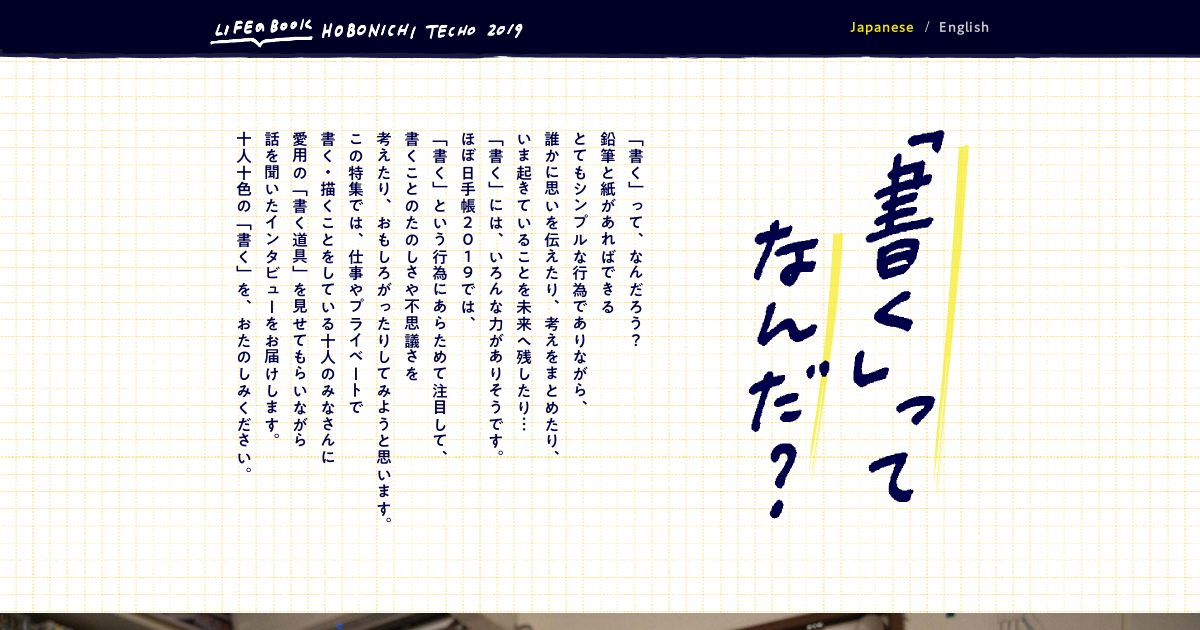 LIFEのBOOK HOBONICHI TECHO 2019
Japanese / English
「書く」って
なんだ?
「書く」って、なんだろう?
鉛筆と紙があればできる
とてもシンプルな行為でありながら、
誰かに思いを伝えたり、考えをまとめたり、
いま起きていることを未来へ残したり…
「書く」には、いろんな力がありそうです。
ほぼ日手帳2019では、
「書く」という行為にあらためて注目して、
書くことのたのしさや不思議さを
考えたり、おもしろがったりしてみようと思います。
この特集では、仕事やプライベートで
書く・描くことをしている十人のみなさんに
愛用の「書く道具」を見せてもらいながら
話を聞いたインタビューをお届けします。
十人十色の「書く」を、おたのしみください。